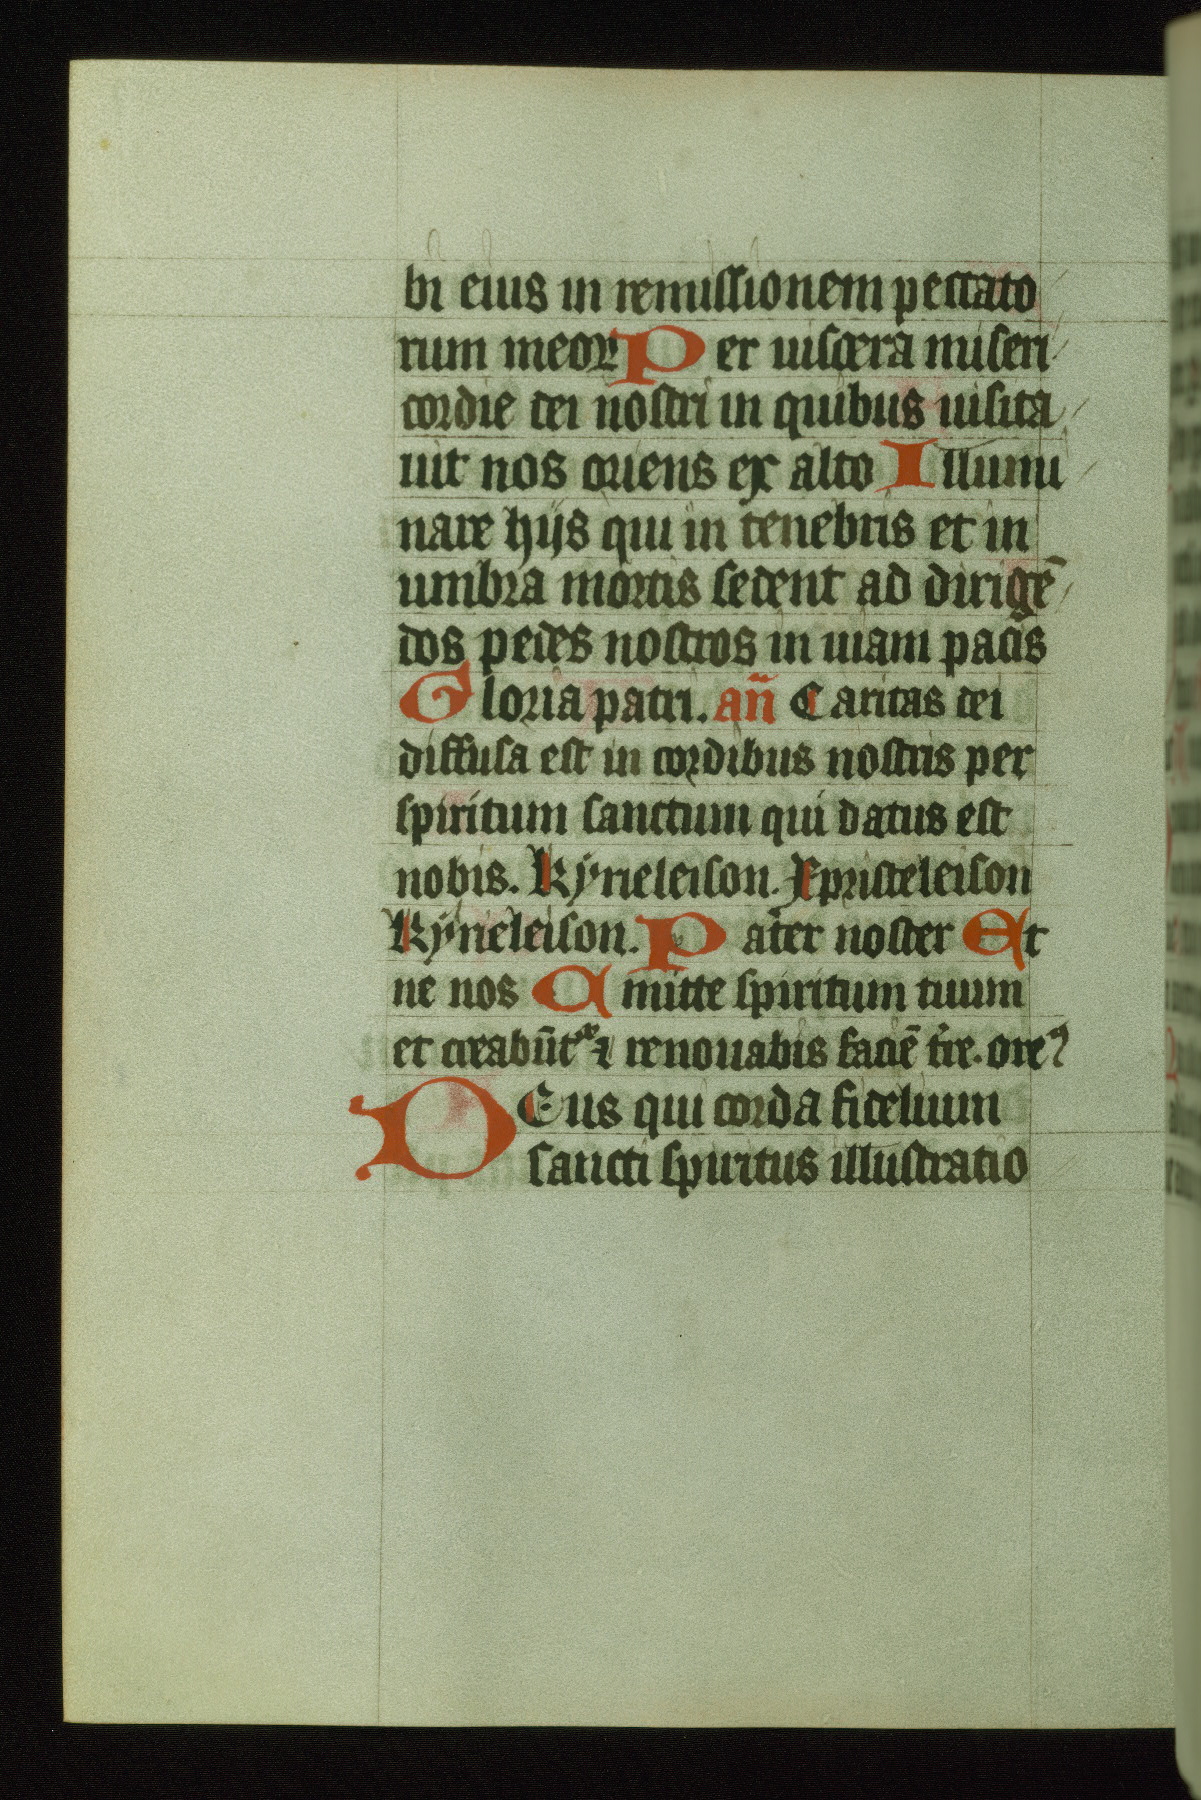 bi eius in remissionem peccato
rum meoꝝ Per uiscera miseri
cordie dei nostri in quibus uisita
uit nos oriens ex alto Illumi
nare hijs qui in tenebris et in
umbra mortis sedent ad dirigē
dos pedes nostros in uiam pacis
Gloria patri. an̄ Caritas dei
diffusa est in cordibus nostris per
spiritum sanctum qui datus est
nobis. Kyrieleison. Xpristeleison
Kyrieleison. Pater noster Et
ne nos Emitte spiritum tuum
et creabūtᷣ ⁊ renouabis faciē tr̄e. oreꝰ
DEus qui corda fidelium
sancti spiritus illustratio